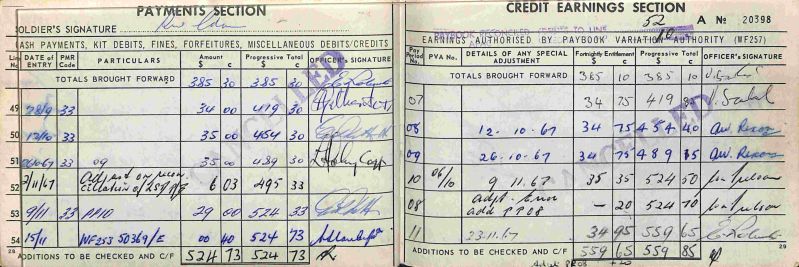 PAYMENTS SECTION
SOLDIER'S SIGNATURE
CASH PAYMENTS, KIT DEBITS, FINES, FORFEITURES, MISCELLANEOUS DEBITS/CREDITS
Line No DATE of ENTRY PMR Code PARTICULARS Amount $ c Progressive Total $ c OFFICER'S SIGNATURE
TOTALS BROUGHT FORWARD 385 30 385 30
49 28/9 33 34 00 419 30
50 12/10 33 35 00 454 30
51 26/10/67 33 09 35 00 489 30
52 2/11/67 6 03 495 33
53 9/11 33 PP10 29 00 524 33
54 15/11 WF253 50369/E 00 40 524 73
28 ADDITIONS TO BE CHECKED AND C/F 524 73 524 73
CANCELLED
CREDIT EARNINGS SECTION
52 A No 20398
EARNINGS AUTHORISED BY PAYBOOK VARIATION AUTHORITY (WF257)
Pay Period No. PVA No. DETAILS OF ANY SPECIAL ADJUSTMENT Fortnightly Entitlement $ c Progressive Total $ c OFFICER'S SIGNATURE
TOTALS BROUGHT FORWARD 385 10 385 10
07 34 75 419
08 12.10.67 34 75 454 40
09 26.10.67 34 75 489 15
10 06/10 9 11.67 35 35 524 50
08 adjt. Error add PP08 - 20 524 70
11 23.11.67 34 95 559 65
ADDITIONS TO BE CHECKED AND C/F 559 65 559 85 29
CANCELLED